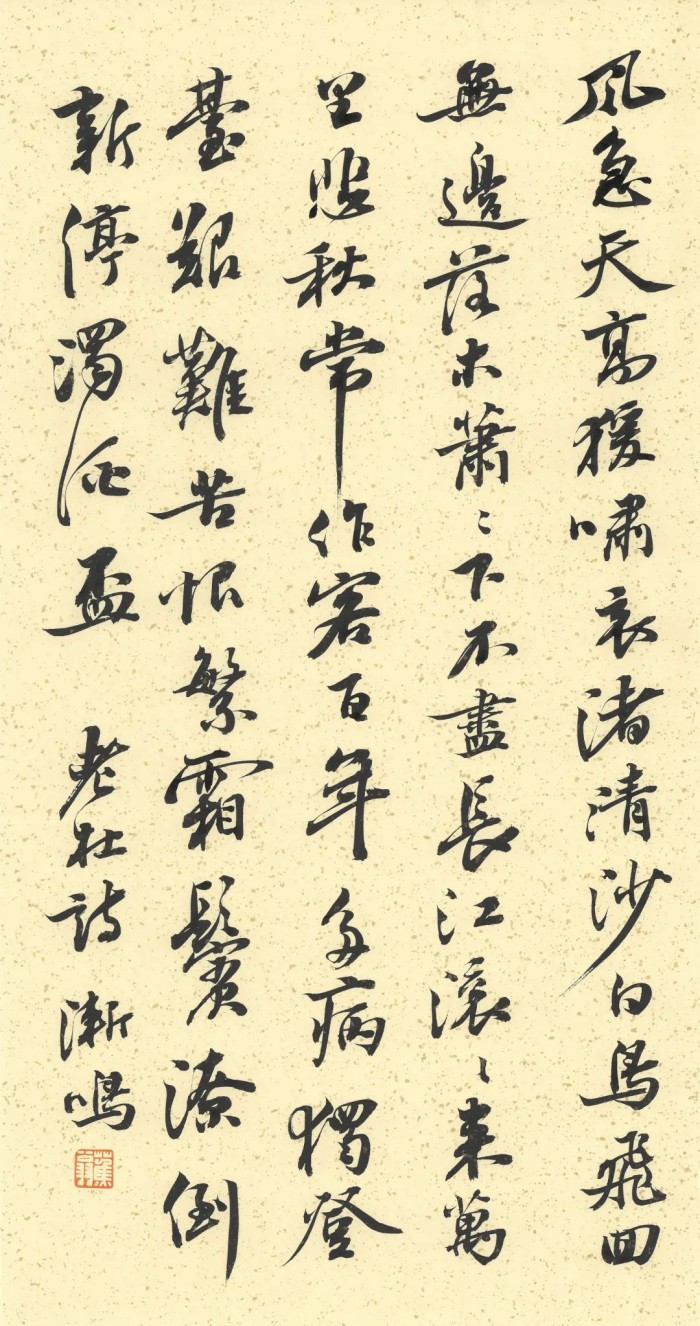 風急天高猨嘯哀渚清沙白鳥飛回
無邊落木蕭〻下不盡長江滾〻來萬
里悲秋常作客百年多病獨登
臺艱難苦恨繁霜鬢潦倒
新停濁酒盃 老杜詩 漸鳴